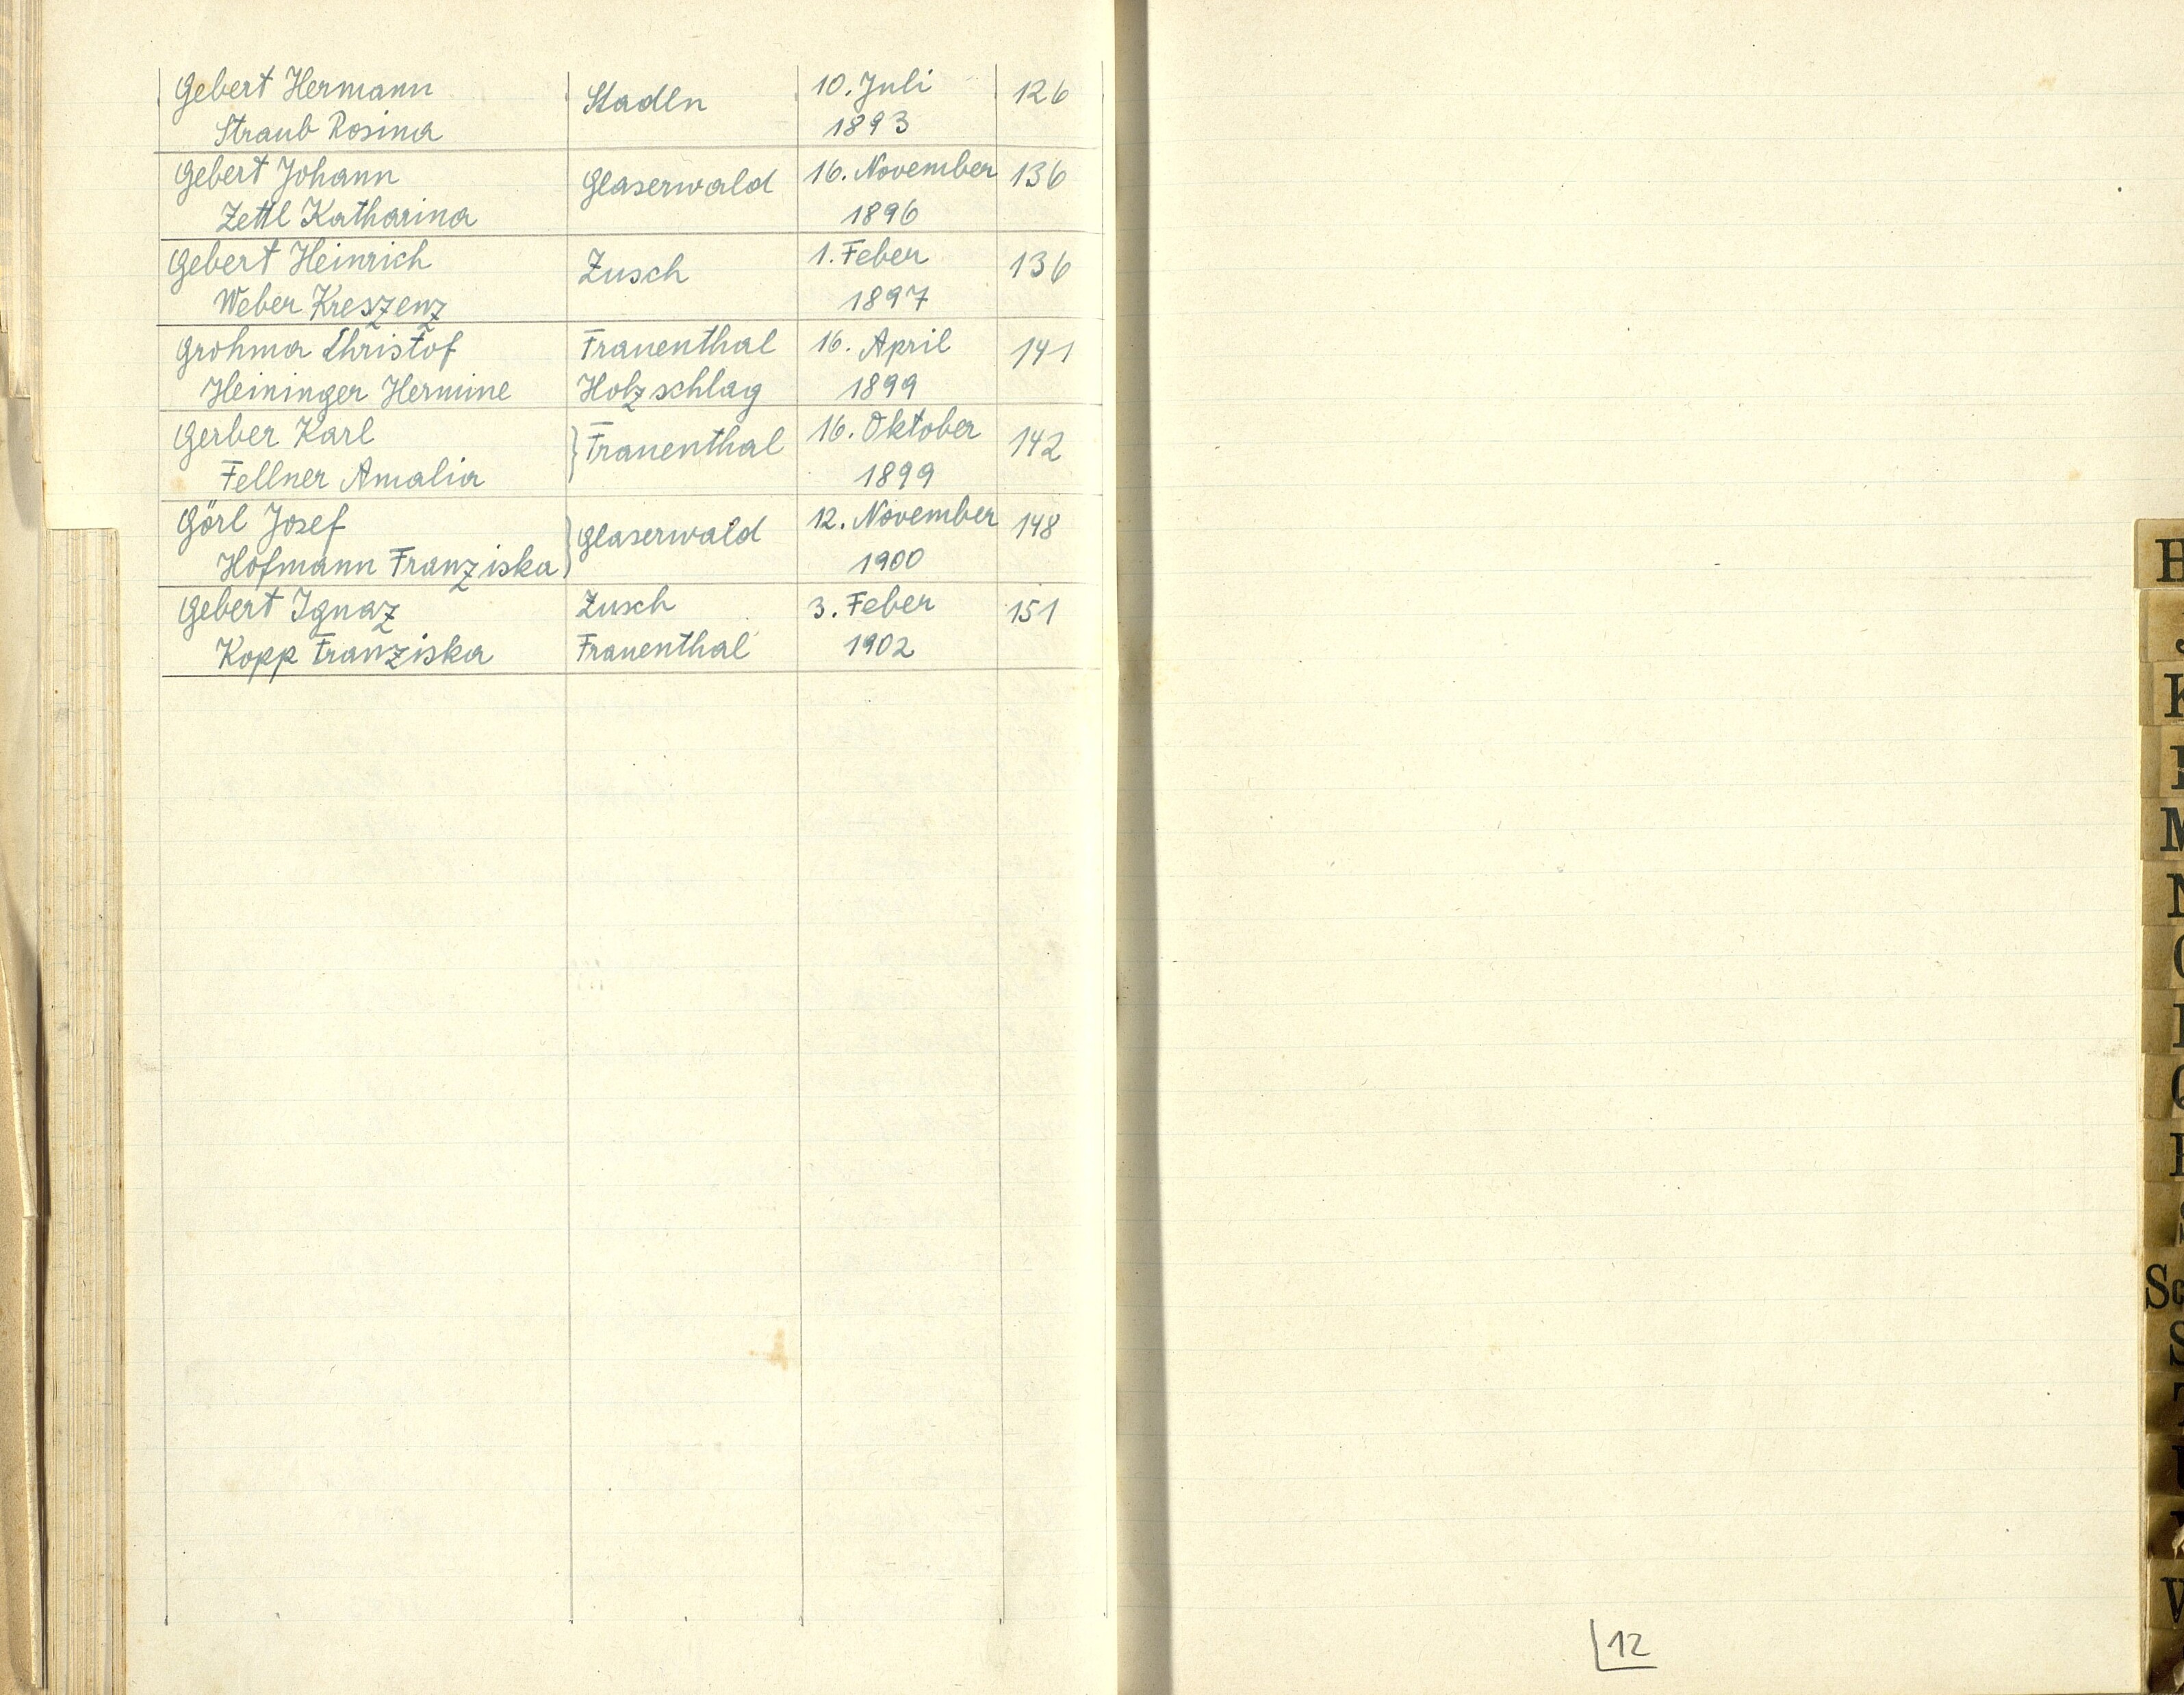 Gebert Hermann Stadln 10. Juli 126
Straub Rosina 1893
Gebert Johann Glaserwald 16. November 136
Zettl Katharina 1896
Gebert Heinrich Zusch 1. Feber 136
Weber Kreszenz 1897
Grohma Christof Frauenthal 16. April 141
Heininger Hermine Holzschlag 1899
Gerber Karl } Frauenthal 16. Oktober 142
Fellner Amalia 1899
Görl Josef } Glaserwald 12. November 148
Hofmann Franziska 1900
Gebert Ignaz Zusch 3. Feber 151
Kopp Franziska Frauenthal 1902
H
K
M
N
Sc
S
W
12